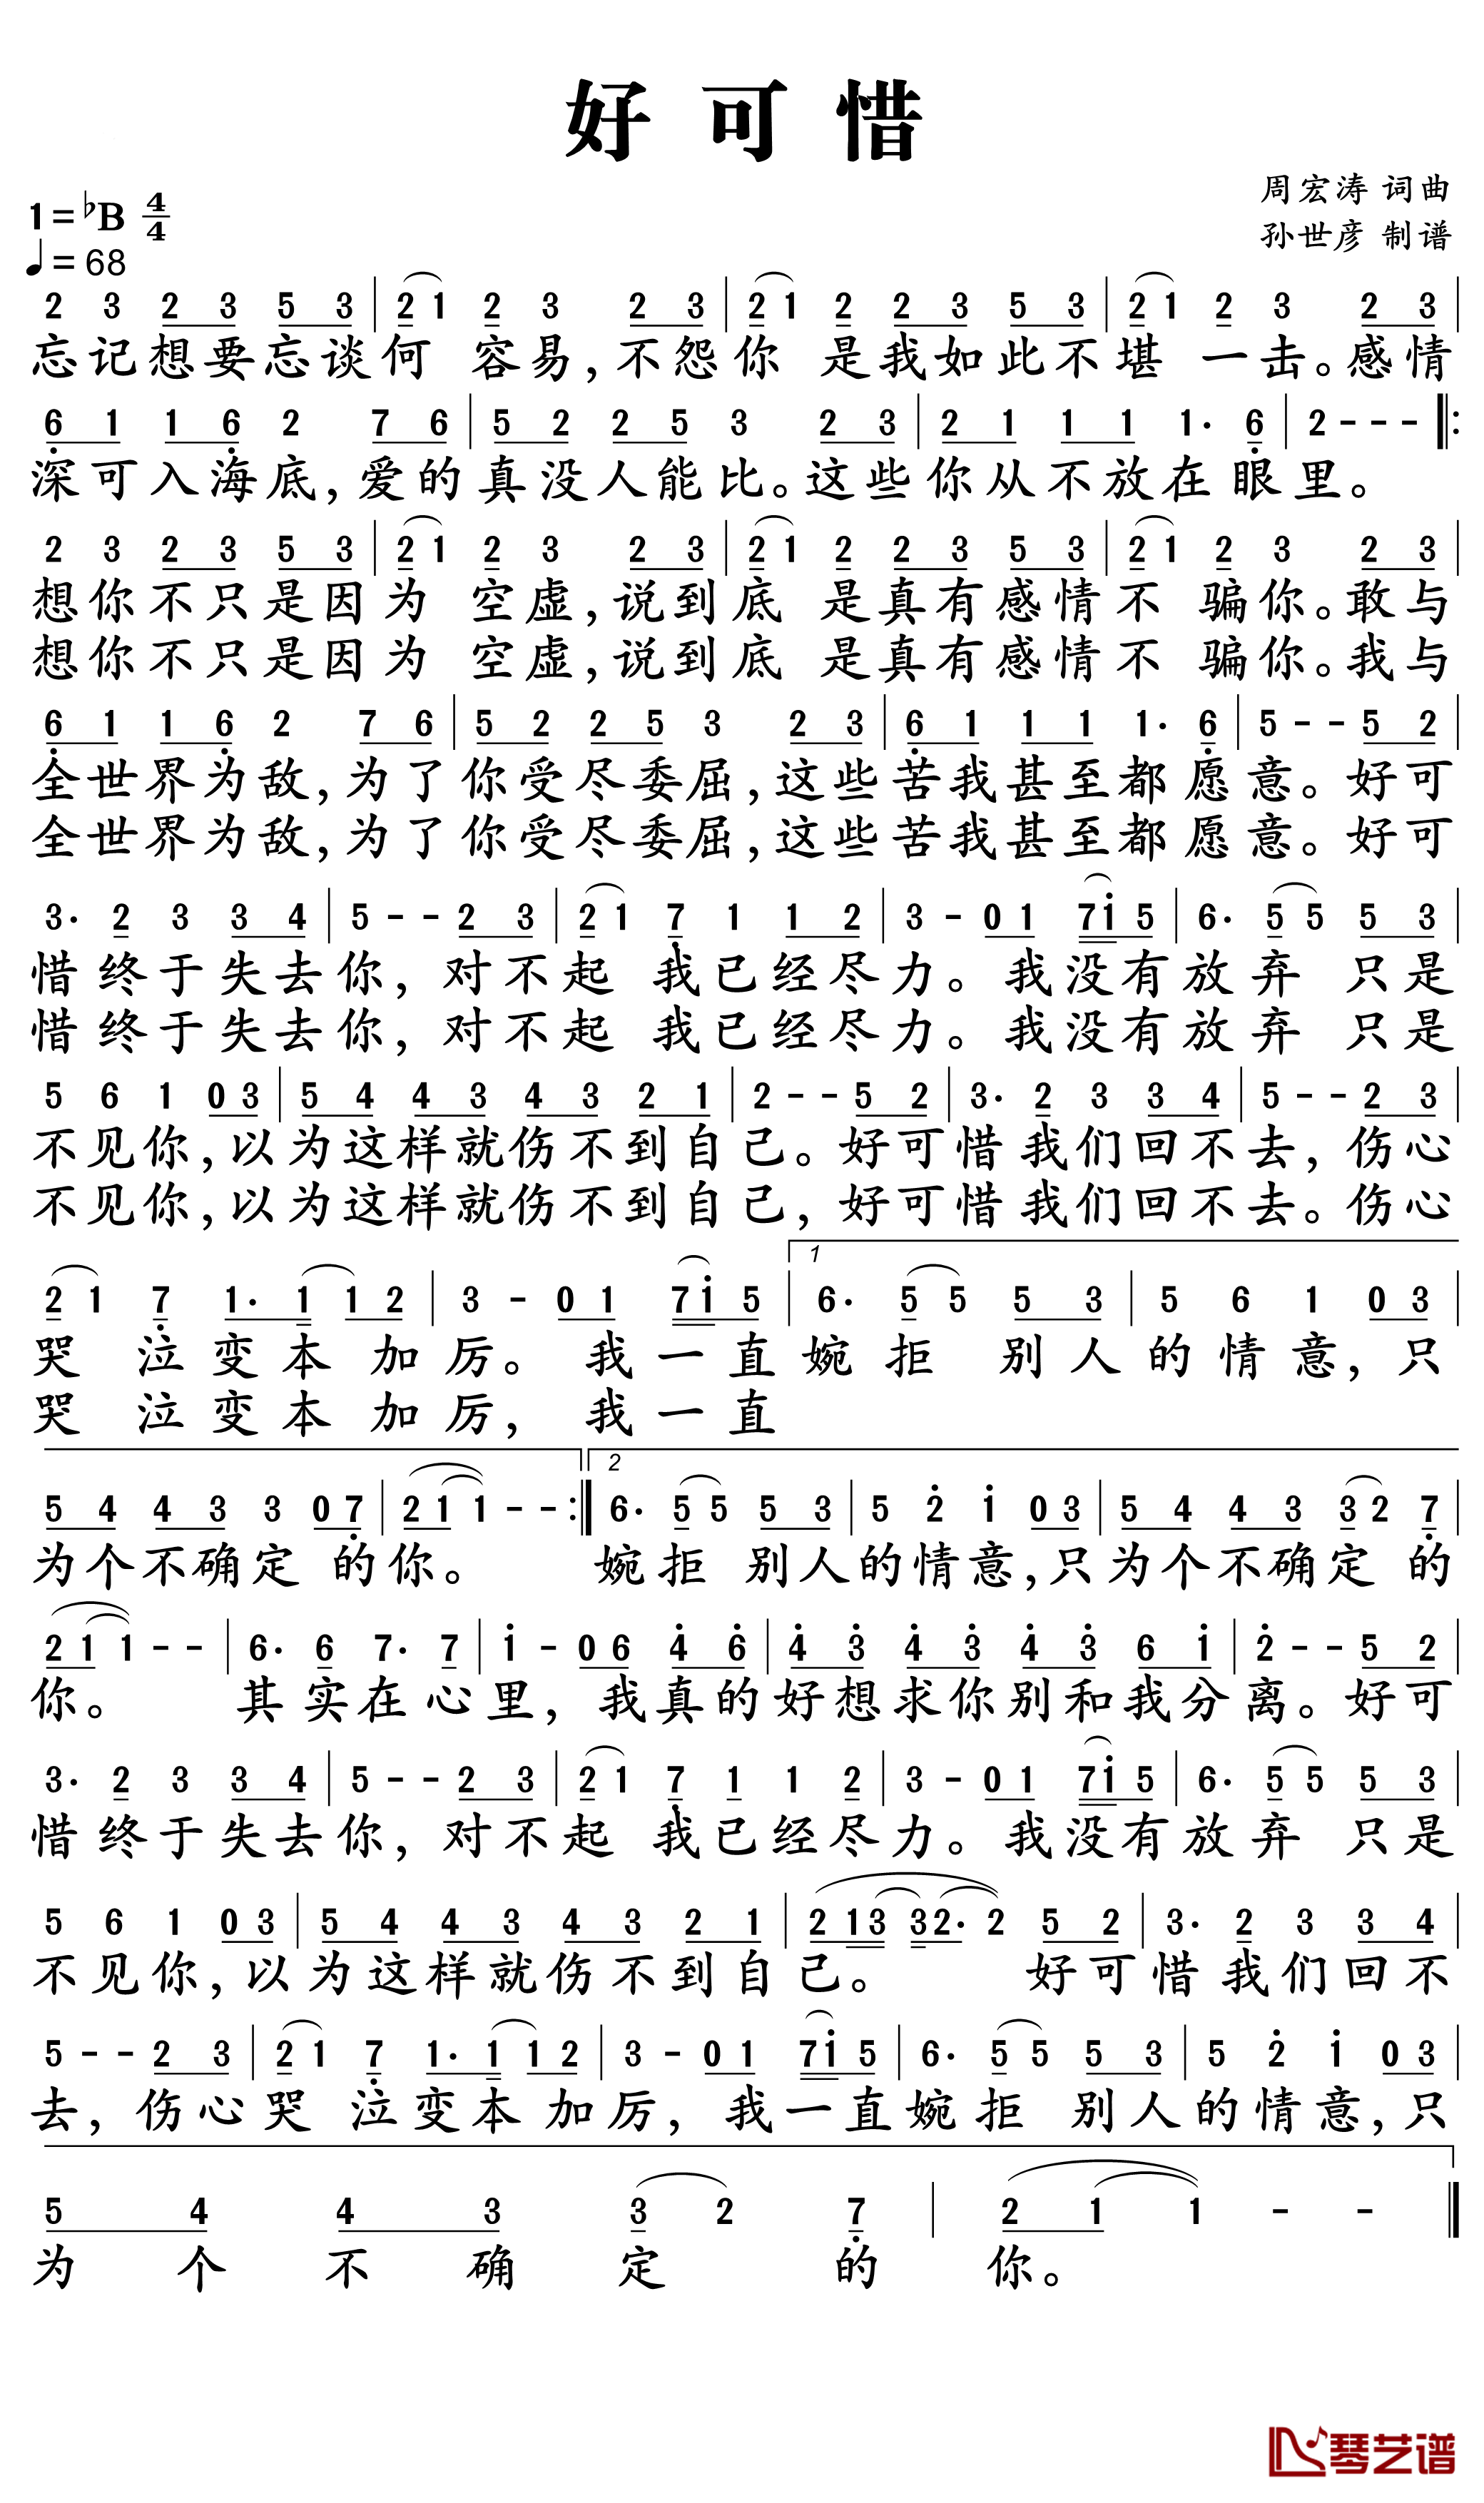 好可惜
周宏涛 词曲
1=♭B 4/4
孙世彦 制谱
♩=68
2 3 2 3 5 3 | 2 1 2 3 2 3 | 2 1 2 2 3 5 3 | 2 1 2 3 2 3 |
忘记想要忘谈何 容易,不怨你 是我如此不堪 一击。感情
6 1 1 6 2 7 6 | 5 2 2 5 3 2 3 | 2 1 1 1 1· 6 | 2 - - - ‖:
深可入海底,爱的真没人能比。这些你从不放在眼里。
2 3 2 3 5 3 | 2 1 2 3 2 3 | 2 1 2 2 3 5 3 | 2 1 2 3 2 3 |
想你不只是因为 空虚,说到底 是真有感情不 骗你。敢与
想你不只是因为 空虚,说到底 是真有感情不 骗你。我与
6 1 1 6 2 7 6 | 5 2 2 5 3 2 3 | 6 1 1 1 1· 6 | 5 - - 5 2
全世界为敌,为了你受尽委屈,这些苦我甚至都愿意。好可
全世界为敌,为了你受尽委屈,这些苦我甚至都愿意。好可
3· 2 3 3 4 | 5 - - 2 3 | 2 1 7 1 1 2 | 3 - 0 1 7 1 5 | 6· 5 5 5 3 |
惜终于失去你,对不起 我已经尽力。我没有放弃 只是
惜终于失去你,对不起 我已经尽力。我没有放弃 只是
5 6 1 0 3 | 5 4 4 3 4 3 2 1 | 2 - - 5 2 | 3· 2 3 3 4 | 5 - - 2 3 |
不见你,以为这样就伤不到自己。好可惜我们回不去,伤心
不见你,以为这样就伤不到自己,好可惜我们回不去。伤心
2 1 7 1· 1 1 2 | 3 - 0 1 7 1 5 | 1 6· 5 5 5 3 | 5 6 1 0 3 |
哭 泣变本 加厉。 我一直婉拒 别人的情意,只
哭 泣变本 加厉, 我一直
5 4 4 3 3 0 7 | 2 1 1 - - :‖ 2 6· 5 5 5 3 | 5 2 1 0 3 | 5 4 4 3 3 2 7 |
为个不确定 的你。 婉拒 别人的情意,只为个不确定 的
2 1 1 - - | 6· 6 7· 7 | 1 - 0 6 4 6 | 4 3 4 3 4 3 6 1 | 2 - - 5 2 |
你。 其实在心里, 我真的好想求你别和我分离。好可
3· 2 3 3 4 | 5 - - 2 3 | 2 1 7 1 1 2 | 3 - 0 1 7 1 5 | 6· 5 5 5 3 |
惜终于失去你,对不起 我已经尽力。我没有放弃 只是
5 6 1 0 3 | 5 4 4 3 4 3 2 1 | 2 1 3 3 2· 2 5 2 | 3· 2 3 3 4 |
不见你,以为这样就伤不到自己。 好可惜我们回不
5 - - 2 3 | 2 1 7 1· 1 1 2 | 3 - 0 1 7 1 5 | 6· 5 5 5 3 | 5 2 1 0 3 |
去,伤心哭 泣变本 加厉,我一直婉拒 别人的情意,只
5 4 4 3 3 2 7 | 2 1 1 - - ‖
为个不确定 的 你。
琴艺谱